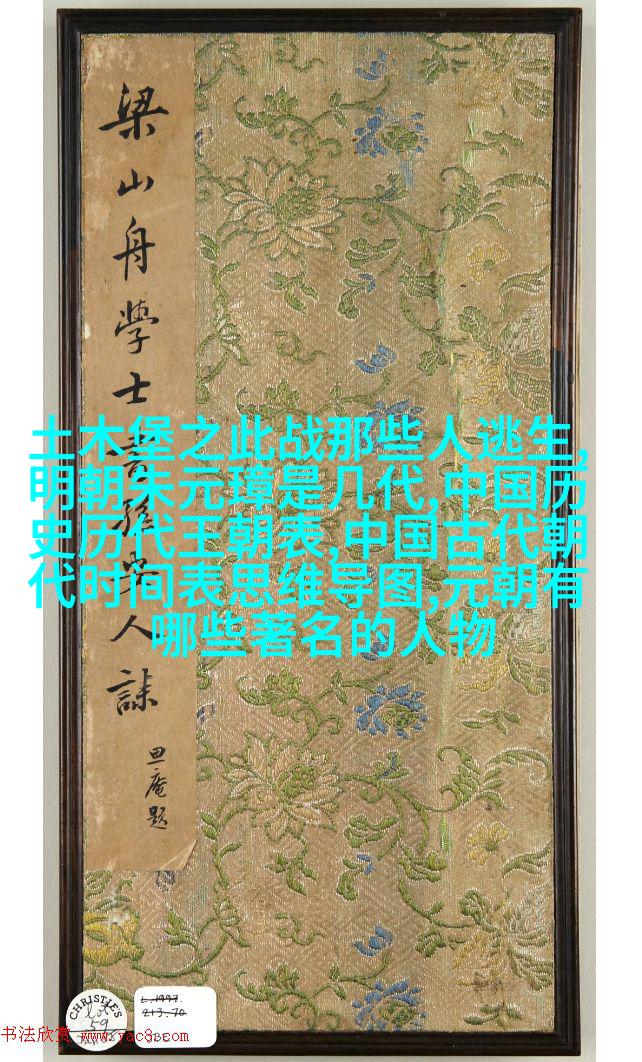 梁山舟學士書孫安人誄
庵題
土木堡之此战那些人逃生,
明朝朱元璋是几代,中国历
史历代王朝表,中国古代朝
代时间表思维导图,元朝有
哪些著名的人物
CHRISTIE'S
lot
59
L.1997.
213.70
书法欣赏 www.yac8.com